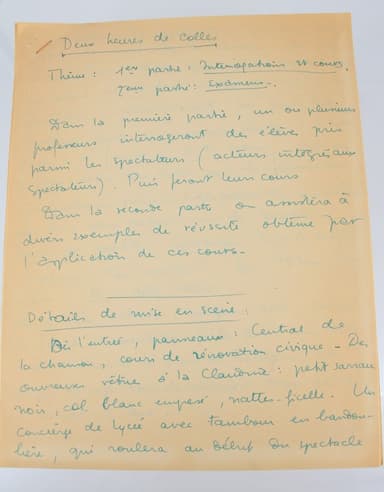 Deux heures de colles
Thème : 1ère partie : Interrogations et cours.
2ème partie : Examens.
Dans la première partie, un ou plusieurs
professeurs interrogeront des élèves pris
parmi les spectateurs (acteurs intégrés aux
spectateurs). Puis feront leurs cours
Dans la seconde partie on assistera à
divers exemples de réussite obtenue par
l'application de ces cours.
Détails de mise en scène :
Dès l'entrée, panneaux : Central de
la chanson, cours de rénovation civique. Des
ouvreuses vêtues à la Claudine : petit sarrau
noir, col blanc empesé, nattes-ficelle. Un
concierge de Lycée avec tambour en bandou-
lière, qui roulera au début du spectacle